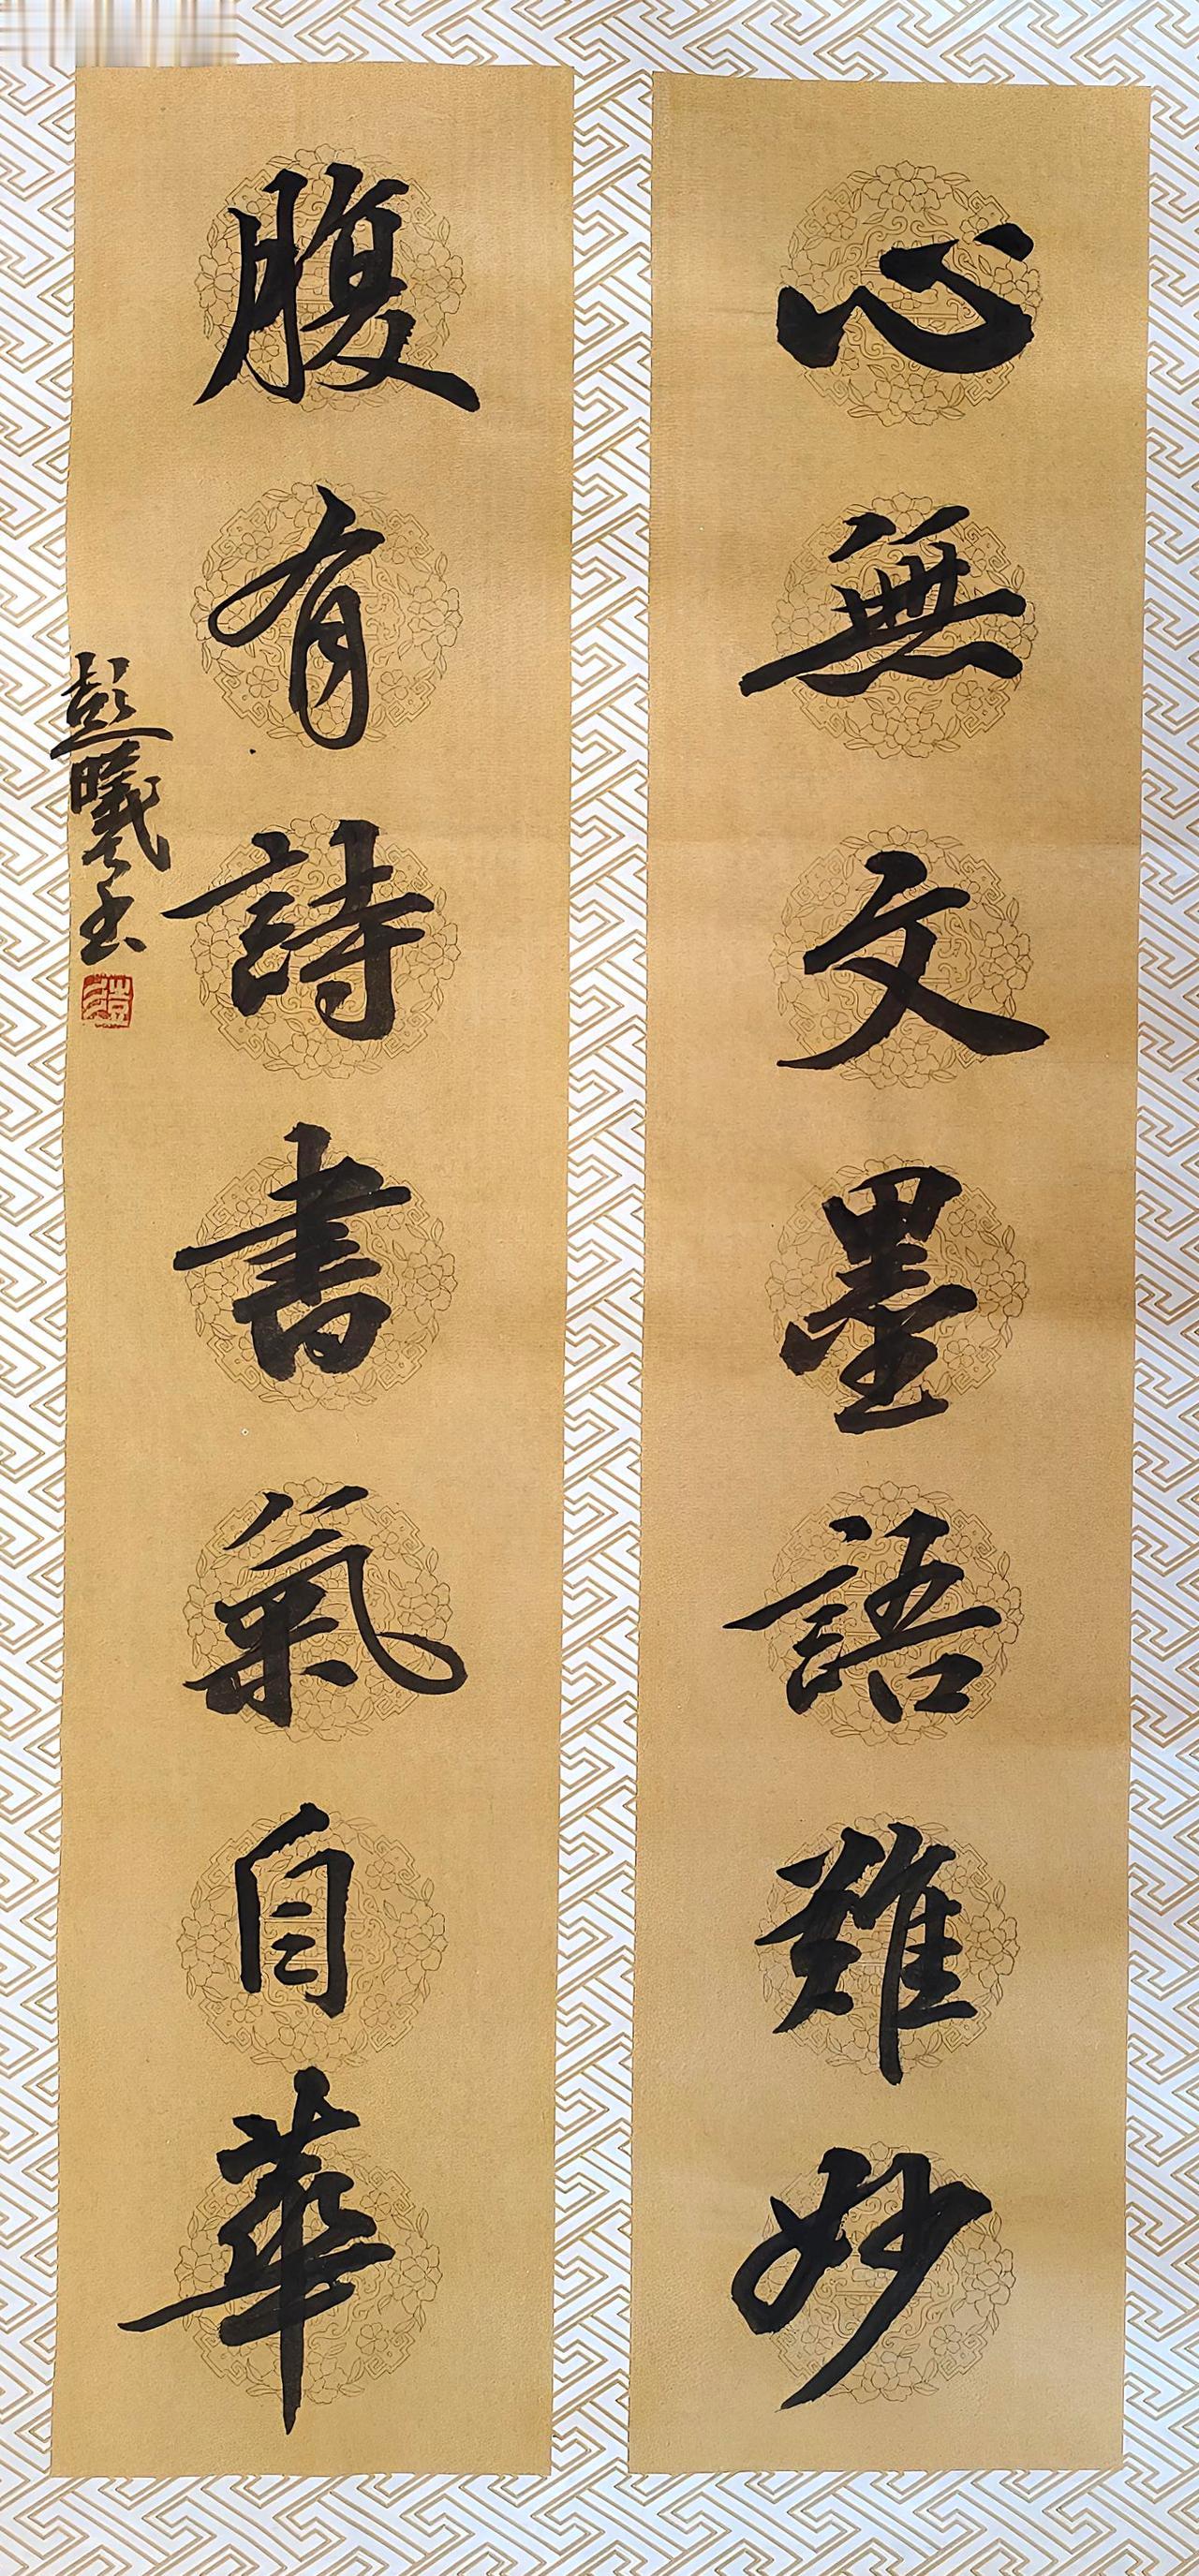 心無文墨語難妙
腹有詩書氣自華
彭曦玉